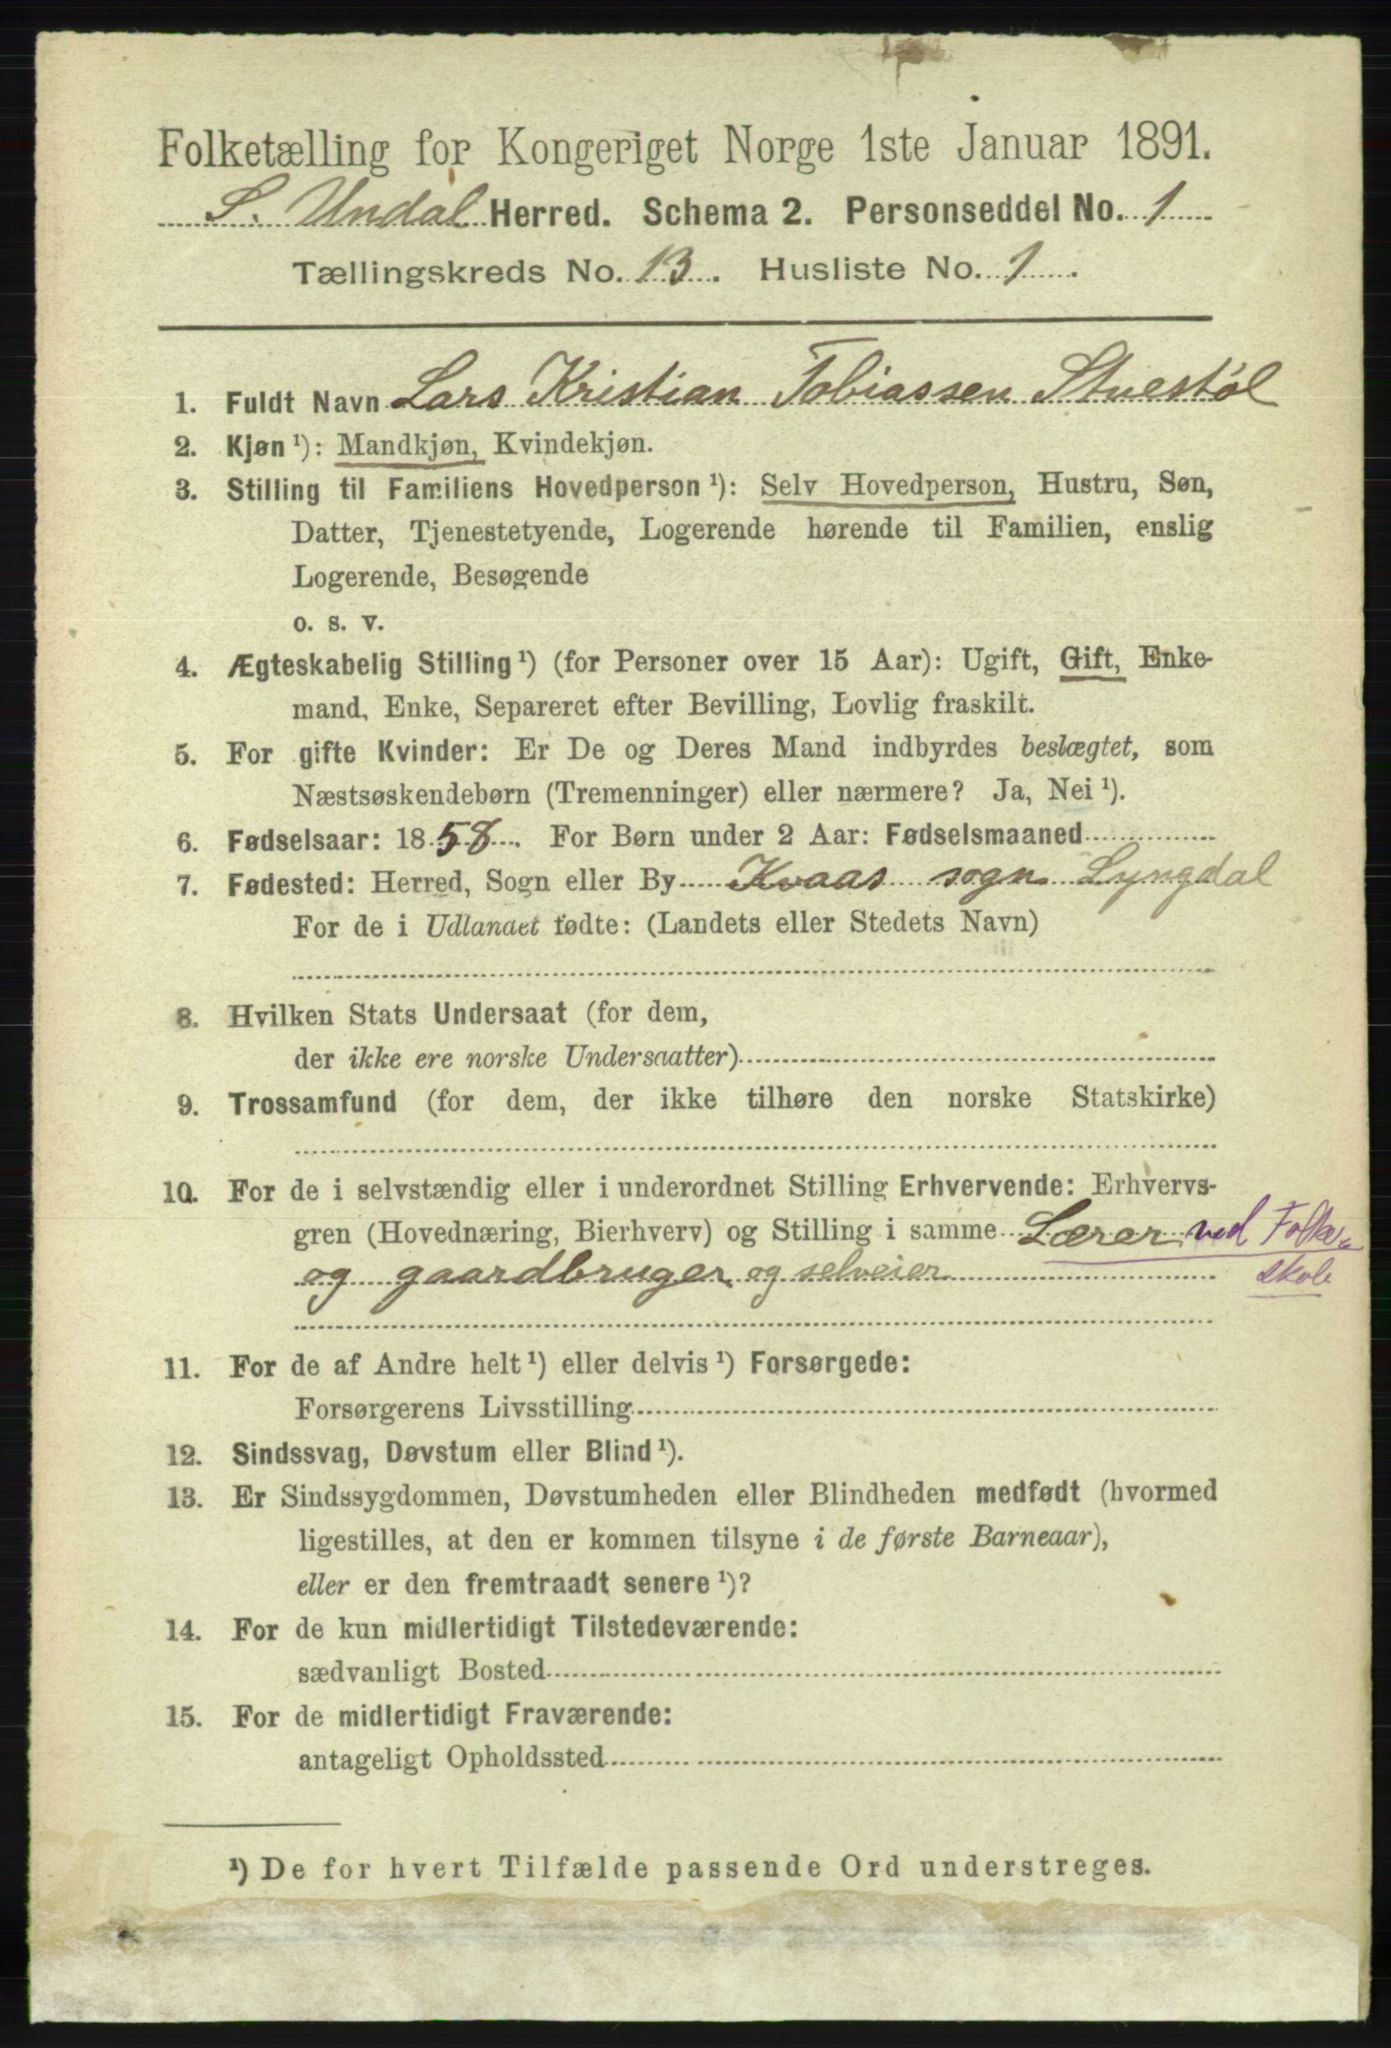 Folketælling for Kongeriget Norge 1ste Januar 1891.
S. Undal Herred. Schema 2. Personseddel No. 1
Tællingskreds No. 13. Husliste No. 1.
1. Fuldt Navn Lars Kristian Tobiassen Stuestøl
2. Kjøn ¹): Mandkjøn, Kvindekjøn.
3. Stilling til Familiens Hovedperson ¹): Selv Hovedperson, Hustru, Søn,
Datter, Tjenestetyende, Logerende hørende til Familien, enslig
Logerende, Besøgende
o. s. v.
4. Ægteskabelig Stilling ¹) (for Personer over 15 Aar): Ugift, Gift, Enke-
mand, Enke, Separeret efter Bevilling, Lovlig fraskilt.
5. For gifte Kvinder: Er De og Deres Mand indbyrdes beslægtet, som
Næstsøskendebørn (Tremenninger) eller nærmere? Ja, Nei ¹).
6. Fødselsaar: 1858. For Børn under 2 Aar: Fødselsmaaned
7. Fødested: Herred, Sogn eller By Kvaas sogn Lyngdal
For de i Udlandet fødte: (Landets eller Stedets Navn)
8. Hvilken Stats Undersaat (for dem,
der ikke ere norske Undersaatter)
9. Trossamfund (for dem, der ikke tilhøre den norske Statskirke)
10. For de i selvstændig eller i underordnet Stilling Erhvervende: Erhvervs-
gren (Hovednæring, Bierhverv) og Stilling i samme Lærer ved Folke-
og gaardbruger og selveier skole
11. For de af Andre helt ¹) eller delvis ¹) Forsørgede:
Forsørgerens Livsstilling
12. Sindssvag, Døvstum eller Blind ¹).
13. Er Sindssygdommen, Døvstumheden eller Blindheden medfødt (hvormed
ligestilles, at den er kommen tilsyne i de første Barneaar),
eller er den fremtraadt senere ¹)?
14. For de kun midlertidigt Tilstedeværende:
sædvanligt Bosted
15. For de midlertidigt Fraværende:
antageligt Opholdssted
¹) De for hvert Tilfælde passende Ord understreges.